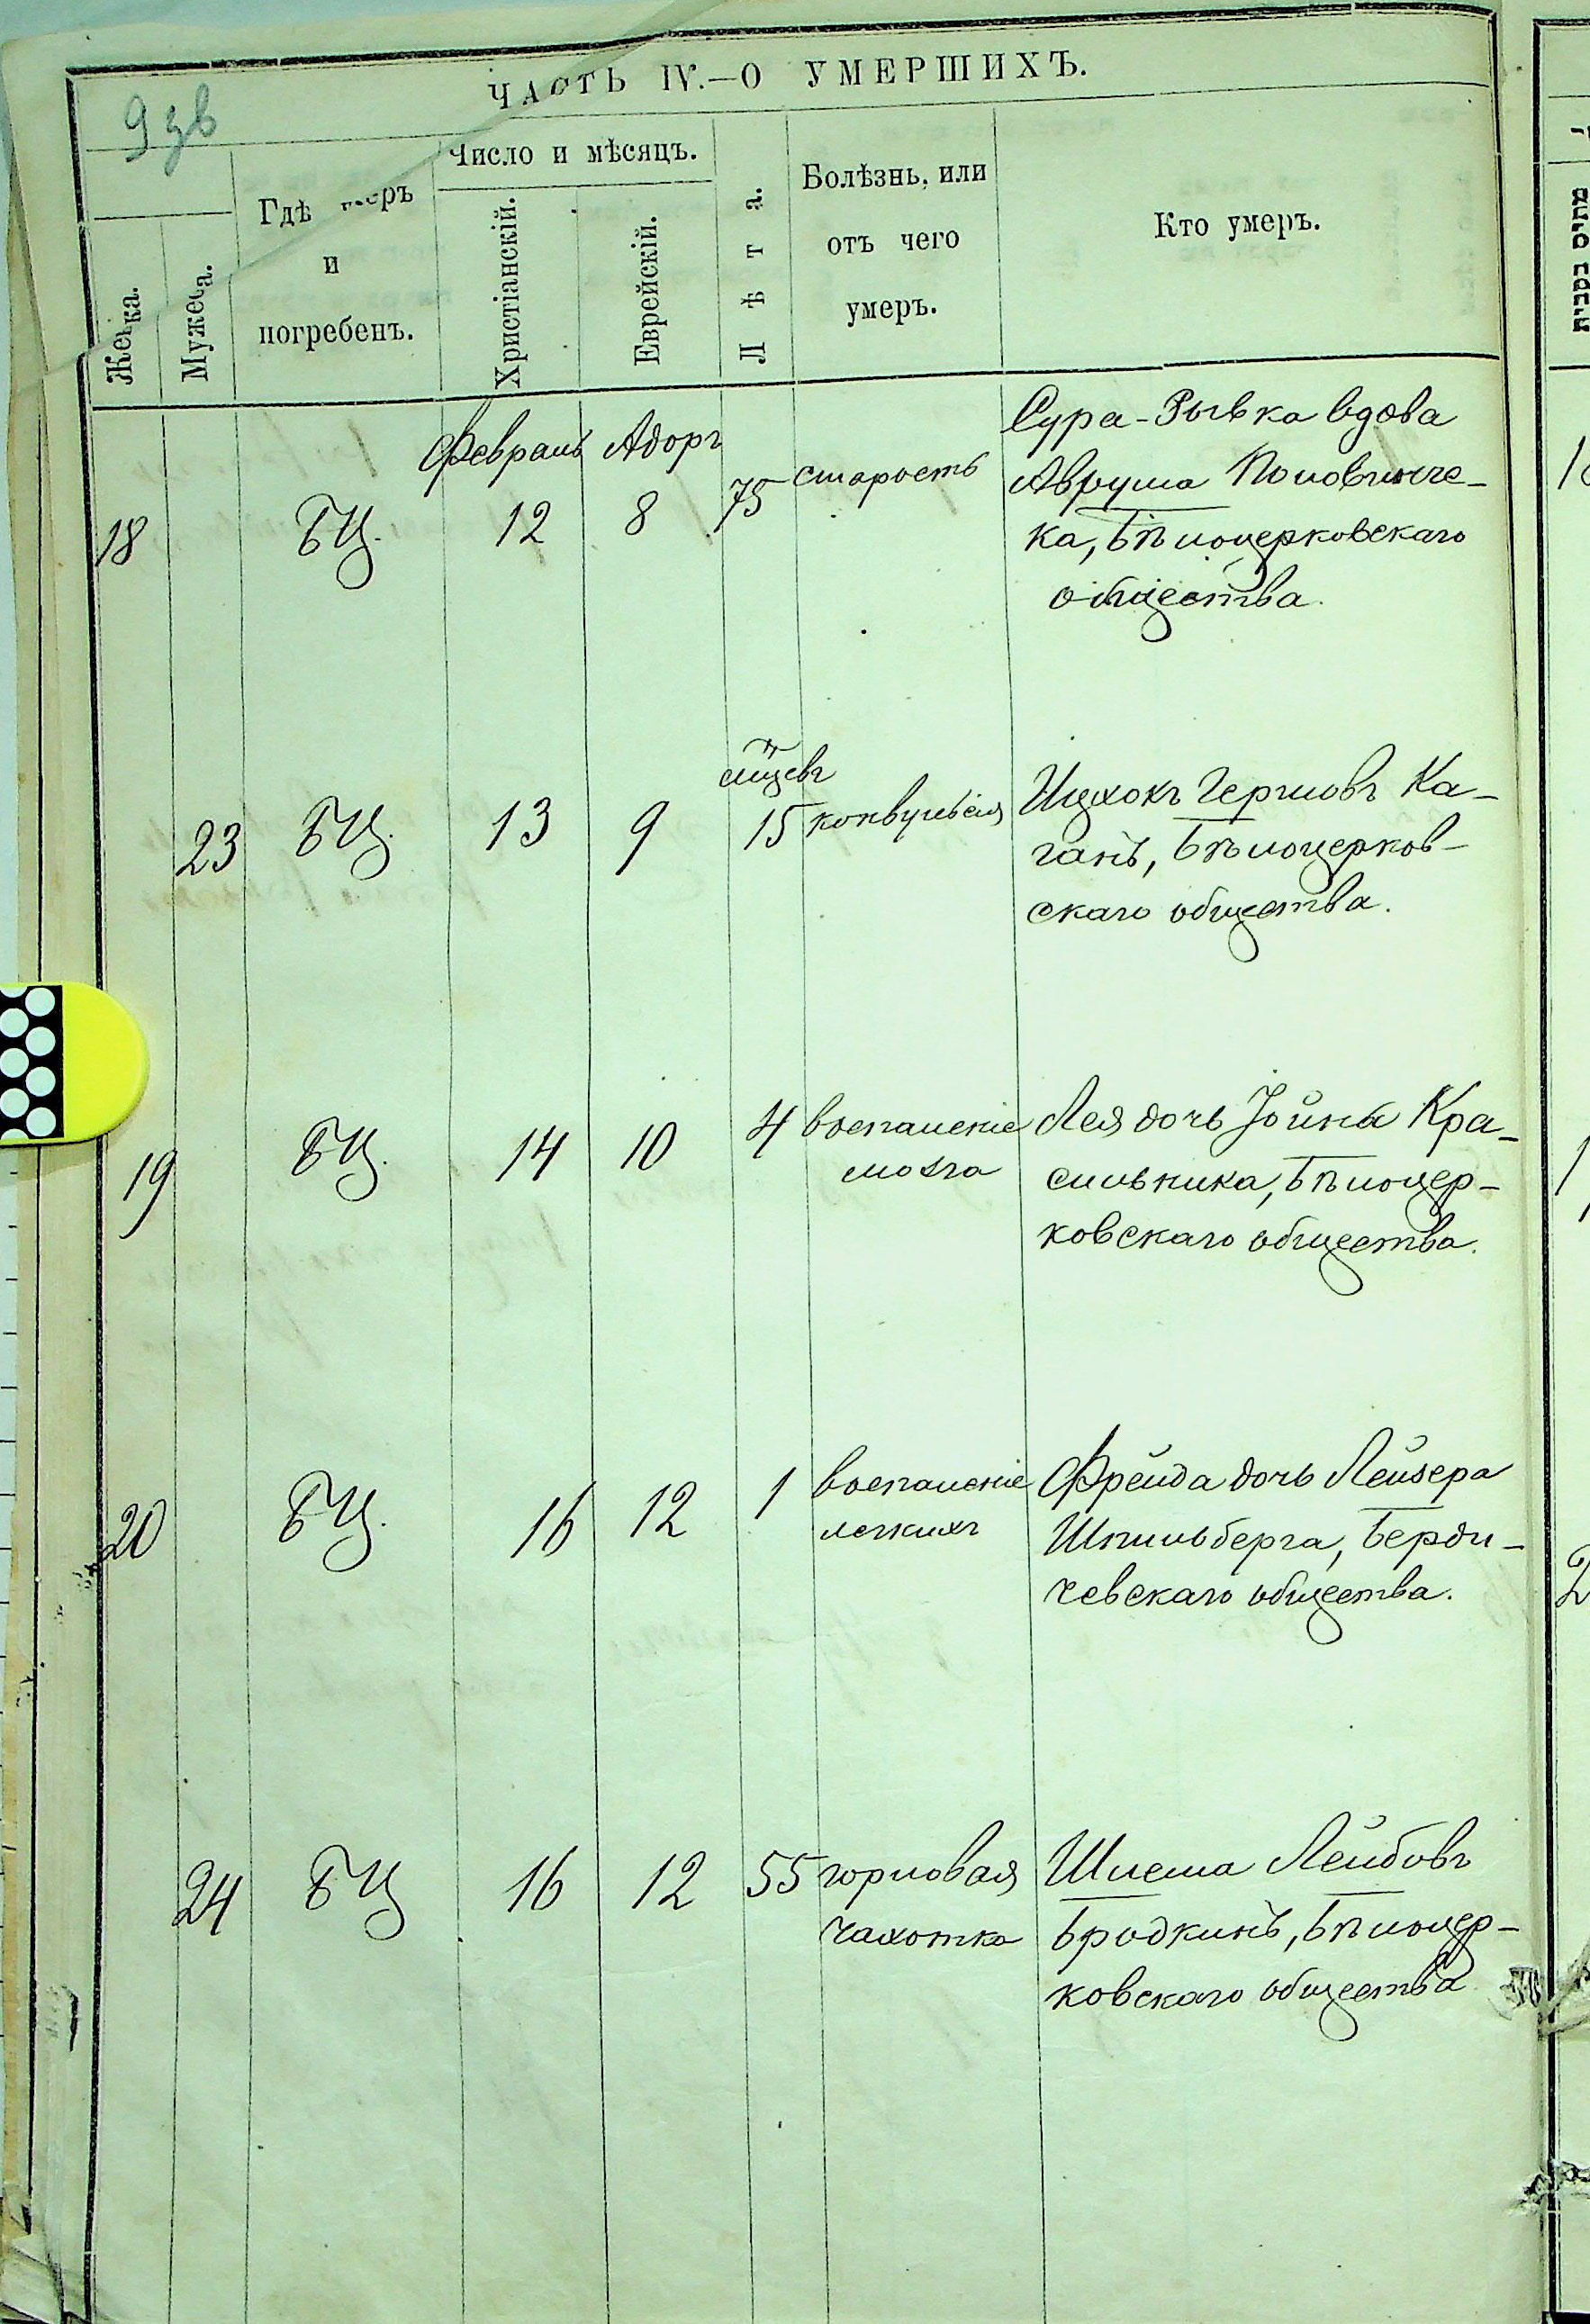 9 зв
ЧАСТЬ IV.—О УМЕРШИХЪ.
Женска.
Мужеска.
Гдѣ умеръ
и
погребенъ.
Число и мѣсяцъ.
Христіанскій.
Еврейскій.
Лѣта.
Болѣзнь, или
отъ чего
умеръ.
Кто умеръ.
Февраль Адоръ
18 БЦ. 12 8 75 старость
Сура-Рывка вдова
Аврума Половинче-
ка, Бѣлоцерковскаго
общества.
м-цевъ
23 БЦ. 13 9 15 конвульсія
Ицхокъ Гершовъ Ка-
ганъ, Бѣлоцерков-
скаго общества.
19 БЦ. 14 10 4 воспаленіе
мозга
Лея дочь Іойны Кра-
сильника, Бѣлоцер-
ковскаго общества.
20 БЦ. 16 12 1 воспаленіе
легкихъ
Фрейда дочь Лейзера
Шпильберга, Берди-
чевскаго общества.
24 БЦ 16 12 55 горловая
чахотка
Шлема Лейбовъ
Бродкинъ, Бѣлоцер-
ковскаго общества